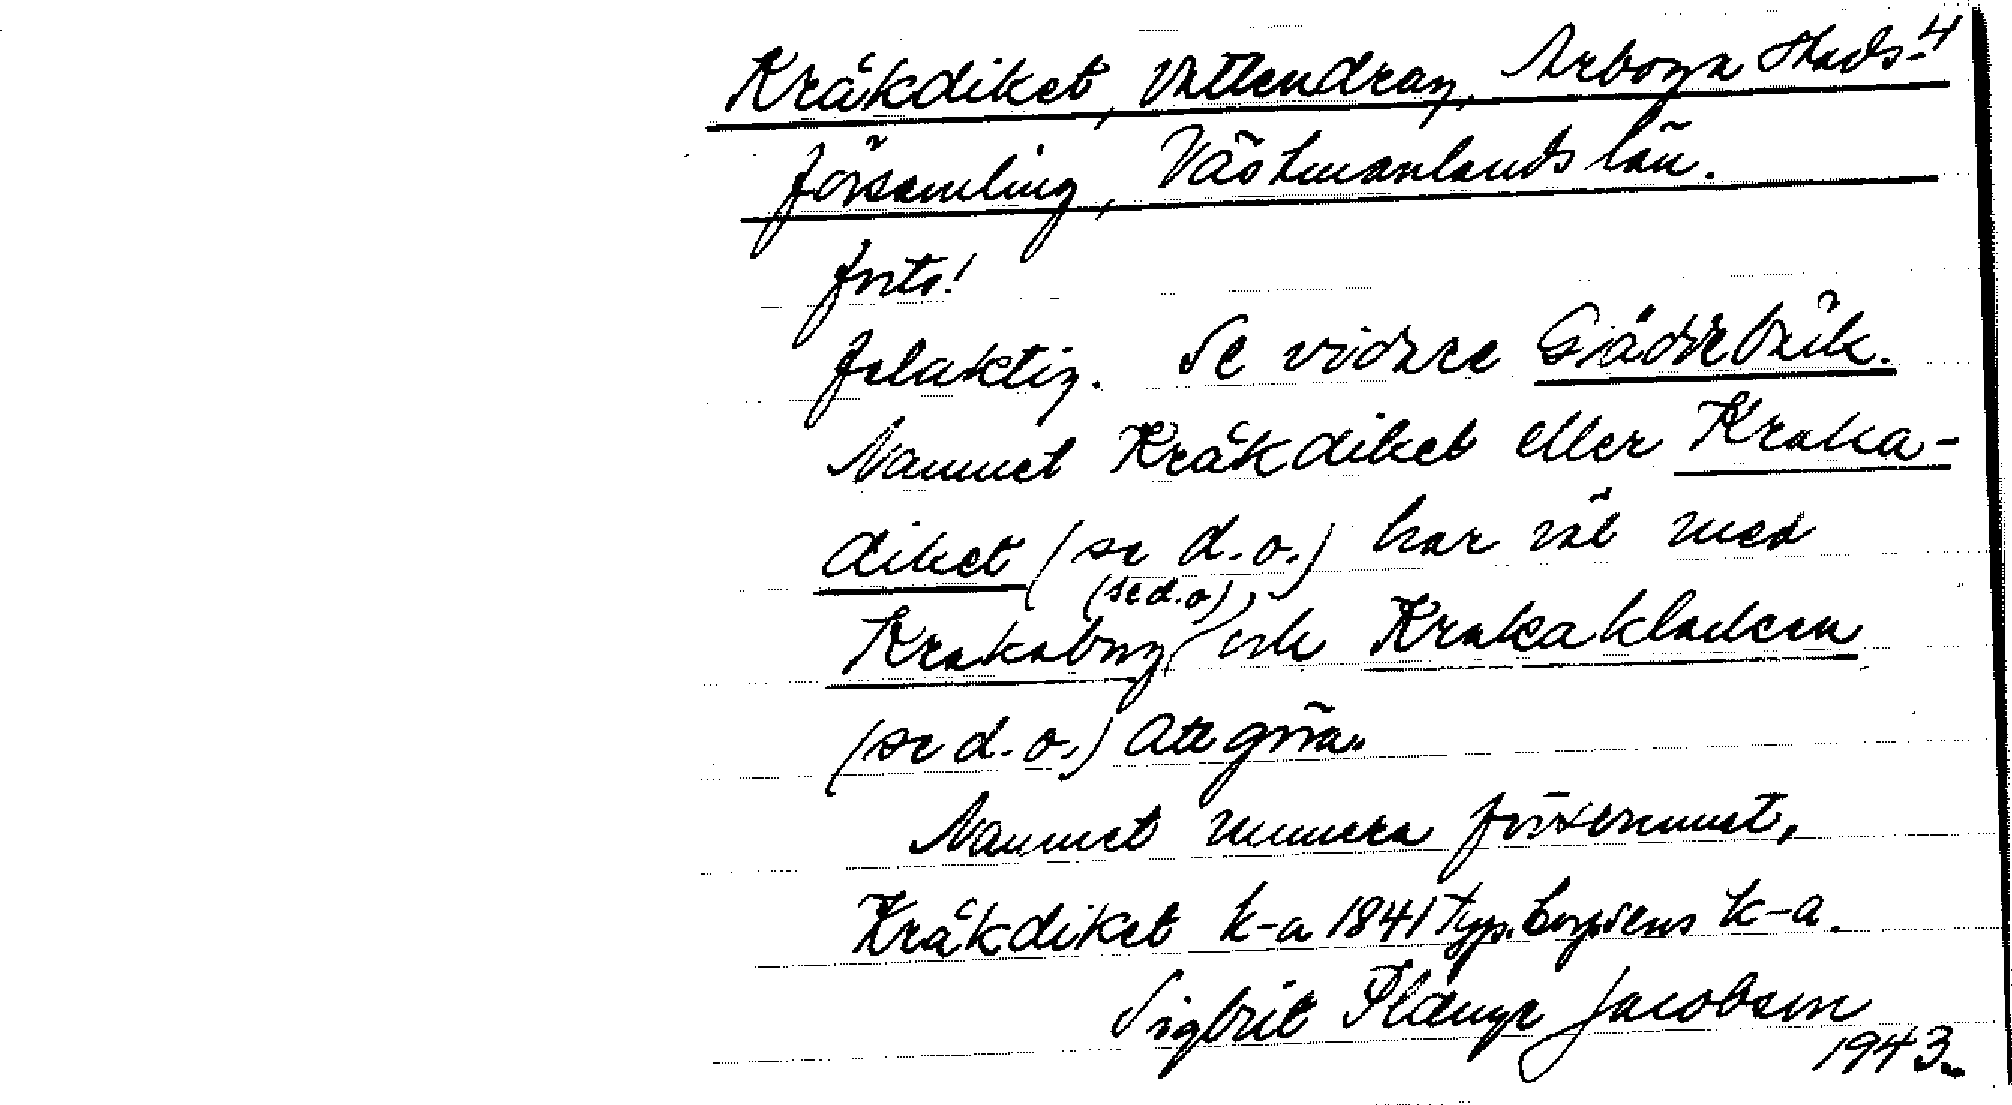 Kräkdiket, Vattendrag, Arboga Stads- 4
församling, Västmanlands län.
forts!
felaktig. Se vidare Gäddebäck.
Namnet Kräkdiket eller Kraka-
diket (se d.o.) har väl med
(se d.o),
Krakaborg och Krakakladden
(se d.o.) att göra.
Namnet numera försvunnet,
Kräkdiket k-a 1841 k-a.
Sigbrit Plænge Jacobson
1943.